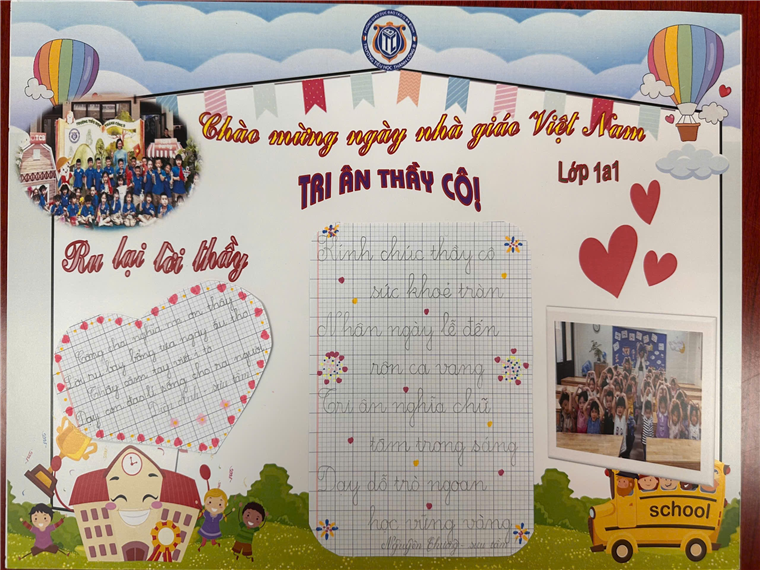 Chào mừng ngày nhà giáo Việt Nam
TRI ÂN THẦY CÔ!
Lớp 1a1
Ru lại lời thầy
Công cha nghĩa mẹ ơn thầy
Lời ru bay bổng
Thầy cầm tay viết i tờ
Dạy con đạo lí sống cho ra người
Kính chúc thầy cô
sức khoẻ tràn
Nhân ngày lễ đến
rộn ca vang
Tri ân nghĩa chữ
tâm trong sáng
Dạy dỗ trò ngoan
học vững vàng
school